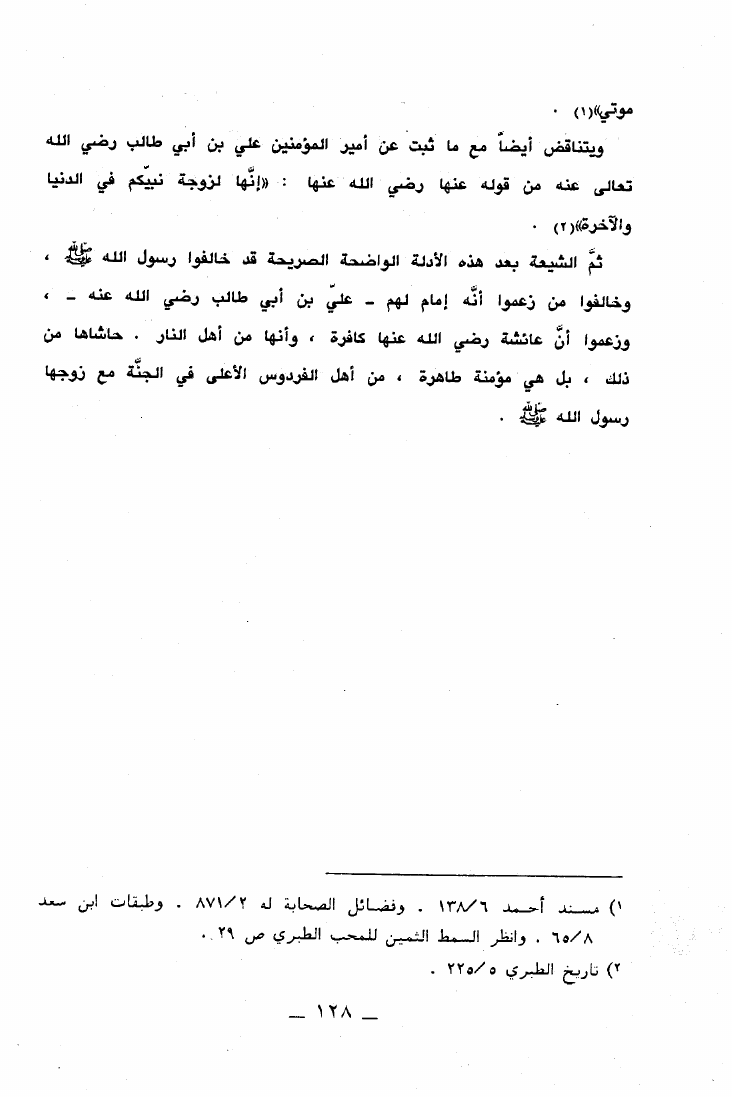 موتي»(١) .
ويتناقض أيضاً مع ما ثبت عن أمير المؤمنين علي بن أبي طالب رضي الله
تعالى عنه من قوله عنها رضي الله عنها : «إنَّها لزوجة نبيّكم في الدنيا
والآخرة»(٢) .
ثمَّ الشيعة بعد هذه الأدلة الواضحة الصريحة قد خالفوا رسول الله ﷺ ،
وخالفوا من زعموا أنَّه إمام لهم ـ عليّ بن أبي طالب رضي الله عنه ـ ،
وزعموا أنَّ عائشة رضي الله عنها كافرة ، وأنها من أهل النار . حاشاها من
ذلك ، بل هي مؤمنة طاهرة ، من أهل الفردوس الأعلى في الجنَّة مع زوجها
رسول الله ﷺ .
١) مسند أحمد ١٣٨/٦ . وفضائل الصحابة له ٨٧١/٢ . وطبقات ابن سعد
٦٥/٨ . وانظر السمط الثمين للمحب الطبري ص ٢٩ .
٢) تاريخ الطبري ٢٢٥/٥ .
ـ ١٢٨ ـ